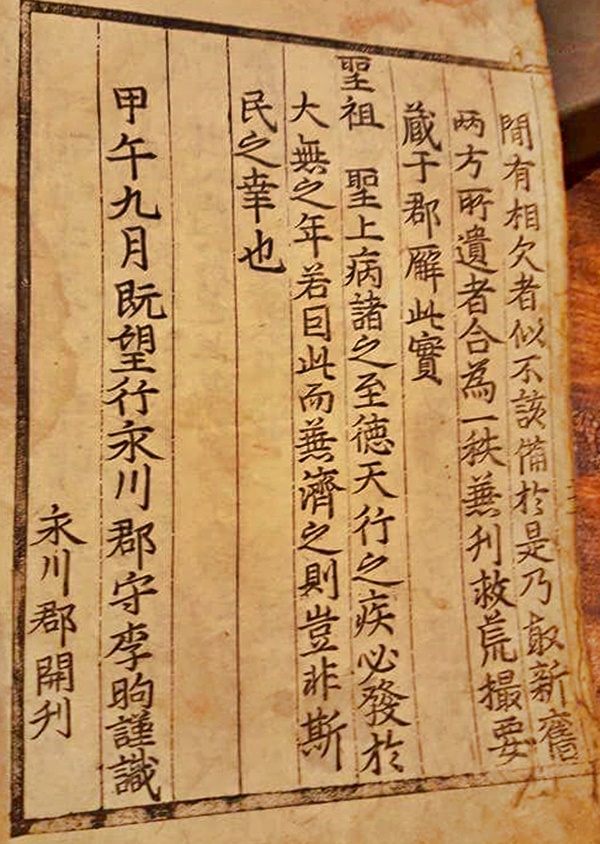 間有相欠者似不該備於是乃取新舊
两方所遺者合為一秩兼刋救荒撮要
蔵于郡廨此實
聖祖　聖上病諸之至徳天行之疾必發於
大無之年若囙此而兼濟之則豈非斯
民之幸也
甲午九月既望行永川郡守李昫謹識
永川郡開刋